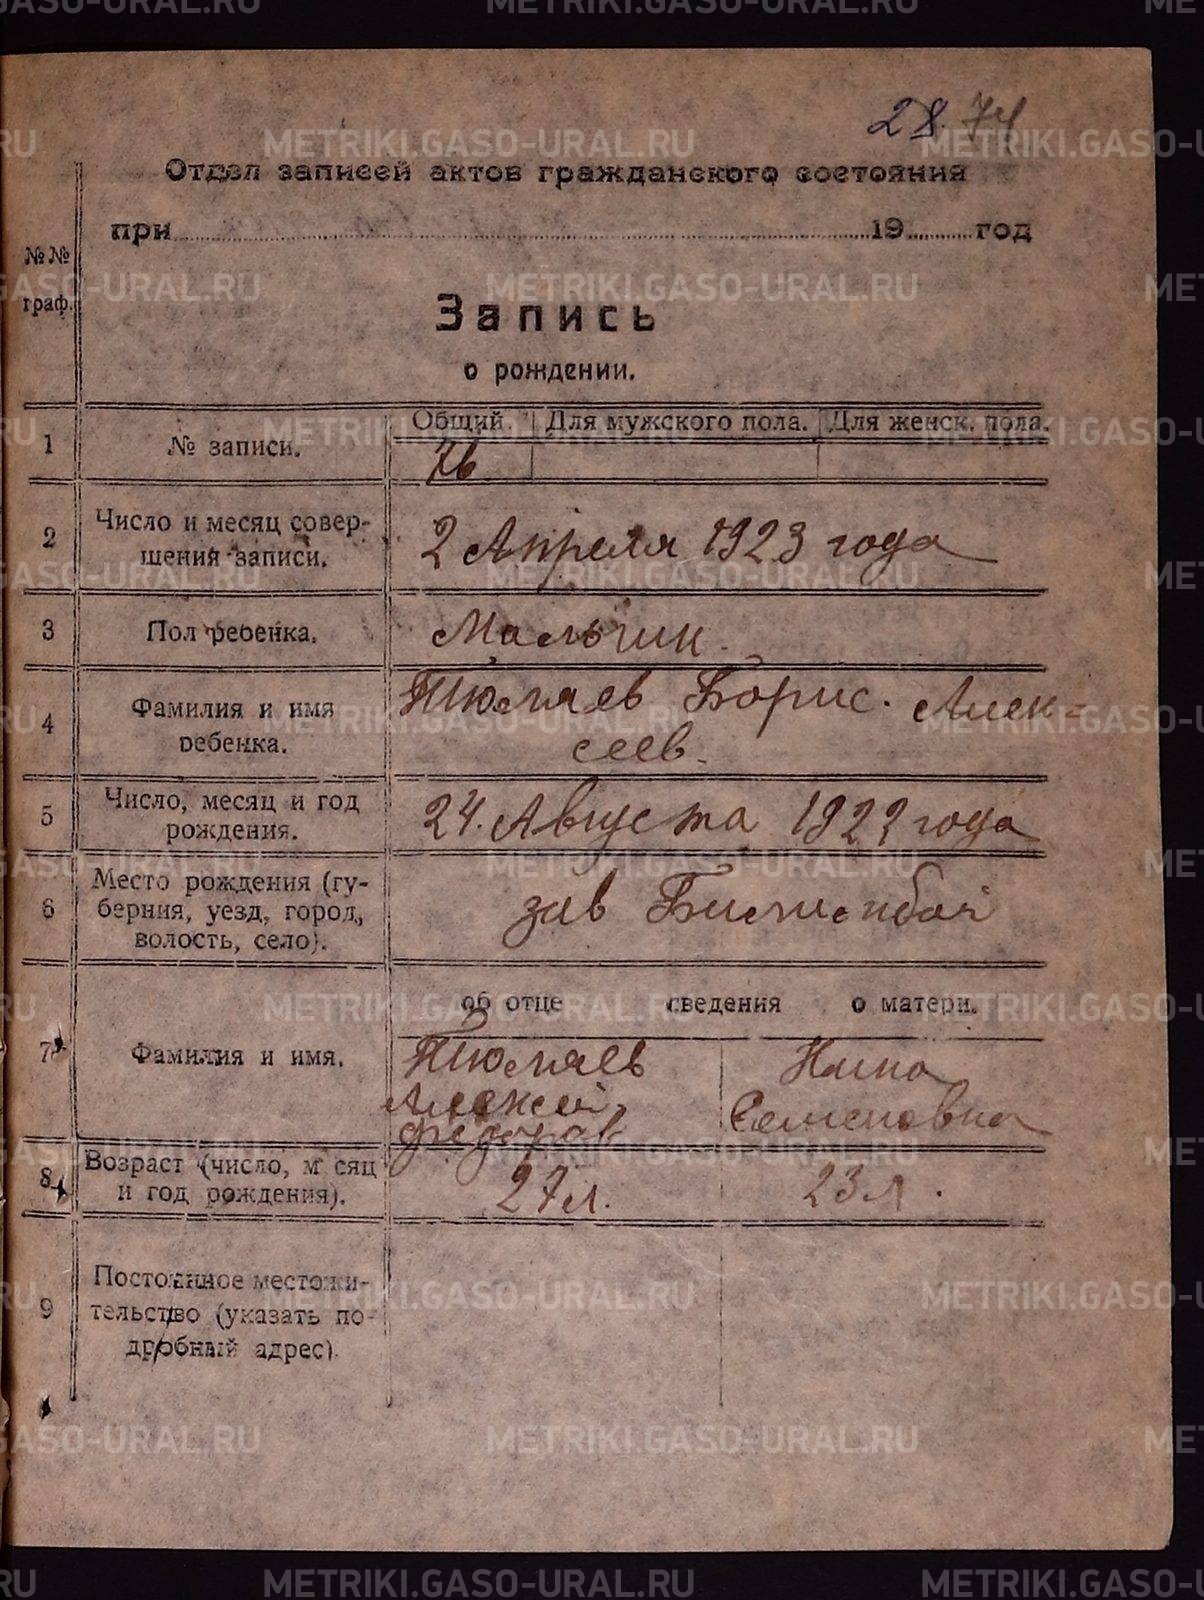 28 74
Отдел записей актов гражданского состояния
при 19 год
№№
граф.
Запись
о рождении.
1 № записи. Общий. Для мужского пола. Для женск. пола.
2 Число и месяц совер-
шения записи.
2 Апреля 1923 года
3 Пол ребенка. Мальчик.
4 Фамилия и имя
ребенка.
Тюляев Борис. Алек-
сеев.
5 Число, месяц и год
рождения.
24. Августа 1922 года
6 Место рождения (гу-
берния, уезд, город,
волость, село).
зав Билимбай
об отце сведения о матери.
7 Фамилия и имя.
Тюляев
Алексей
Федоров
Нина
Семеновна
8 Возраст (число, м сяц
и год рождения).
27 л. 23 л.
9 Постоянное местожи-
тельство (указать по-
дробный адрес).
METRIKI.GASO-URAL.RU